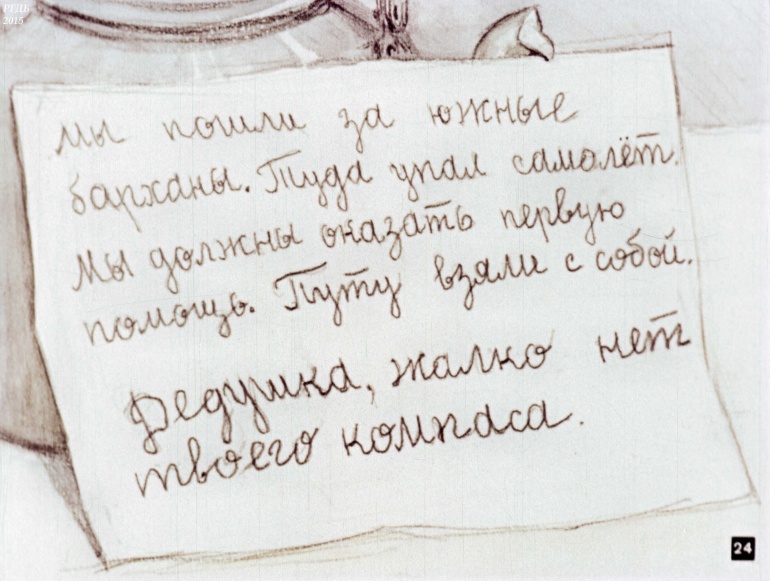 РГДБ
2015
мы пошли за южные
барханы. Туда упал самолёт.
Мы должны оказать первую
помощь. Туту взяли с собой.
Дедушка, жалко нет
твоего компаса.
24